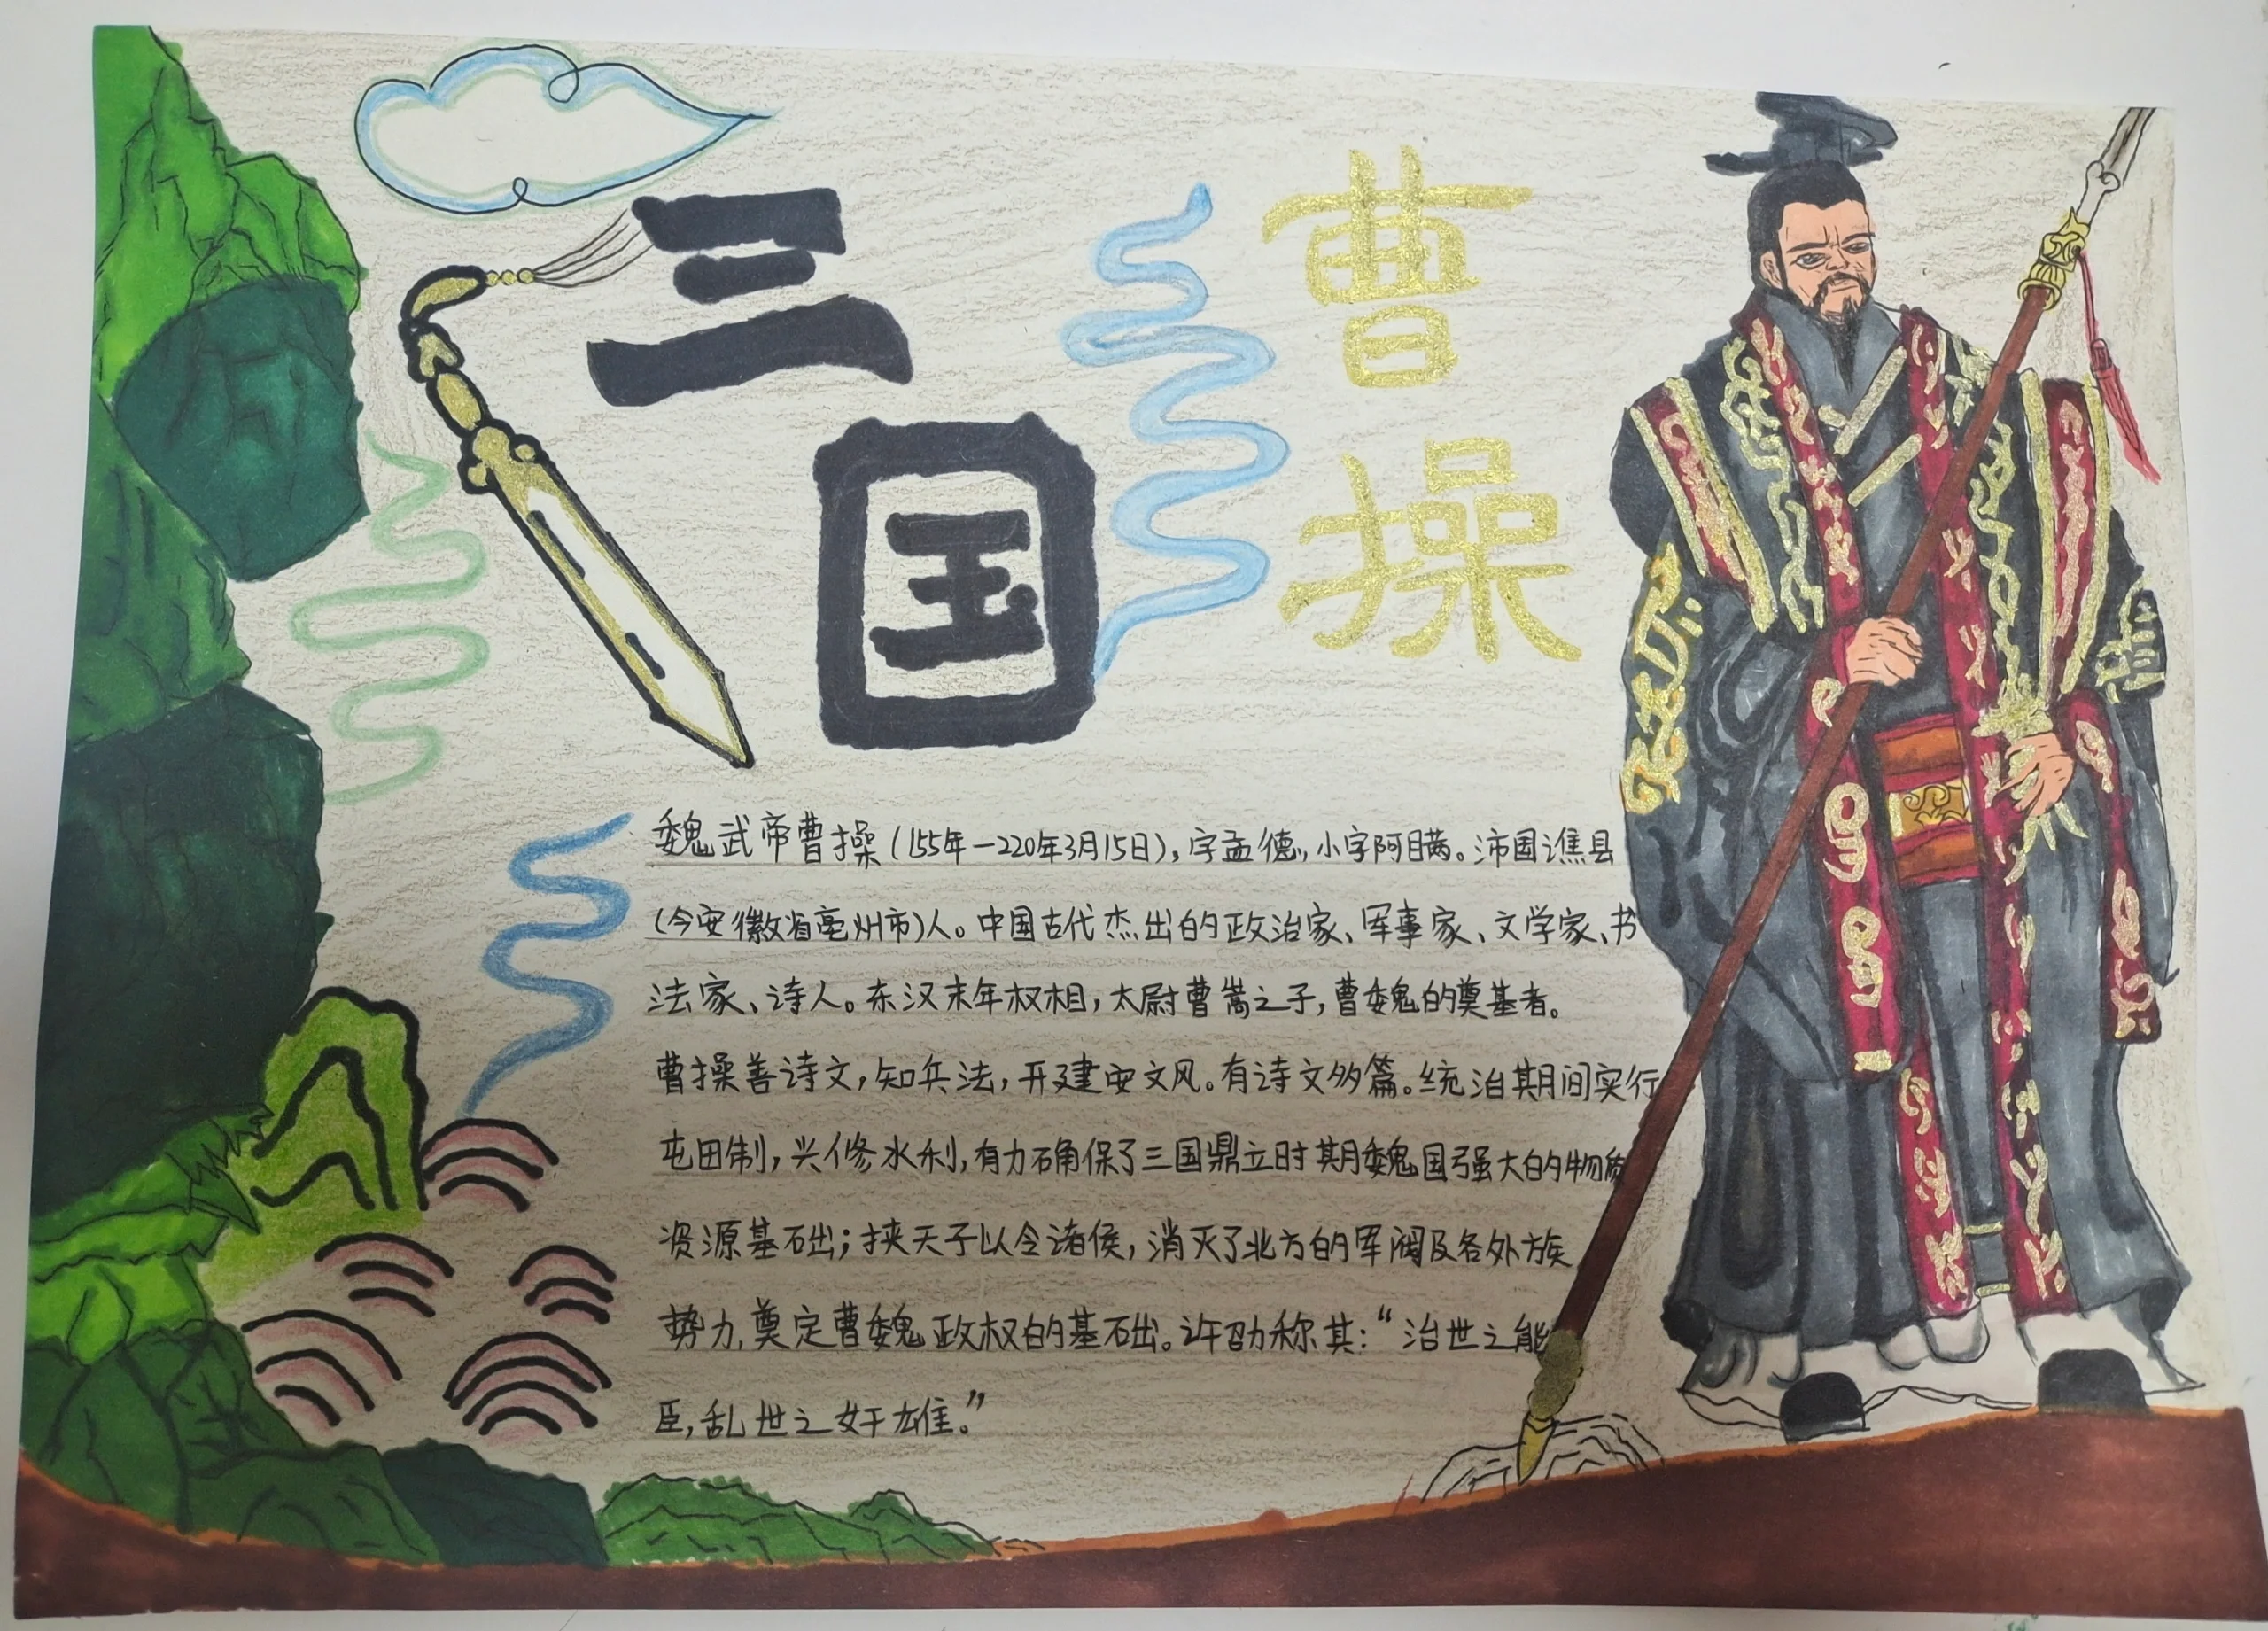 三国
曹操
魏武帝曹操（155年—220年3月15日），字孟德，小字阿瞒。沛国谯县
（今安徽省亳州市）人。中国古代杰出的政治家、军事家、文学家、书
法家、诗人。东汉末年权相，太尉曹嵩之子，曹魏的奠基者。
曹操善诗文，知兵法，开建安文风。有诗文多篇。统治期间实行
屯田制，兴修水利，有力确保了三国鼎立时期魏国强大的物质
资源基础；挟天子以令诸侯，消灭了北方的军阀及各外族
势力，奠定曹魏政权的基础。许劭称其：“治世之能
臣，乱世之奸雄。”